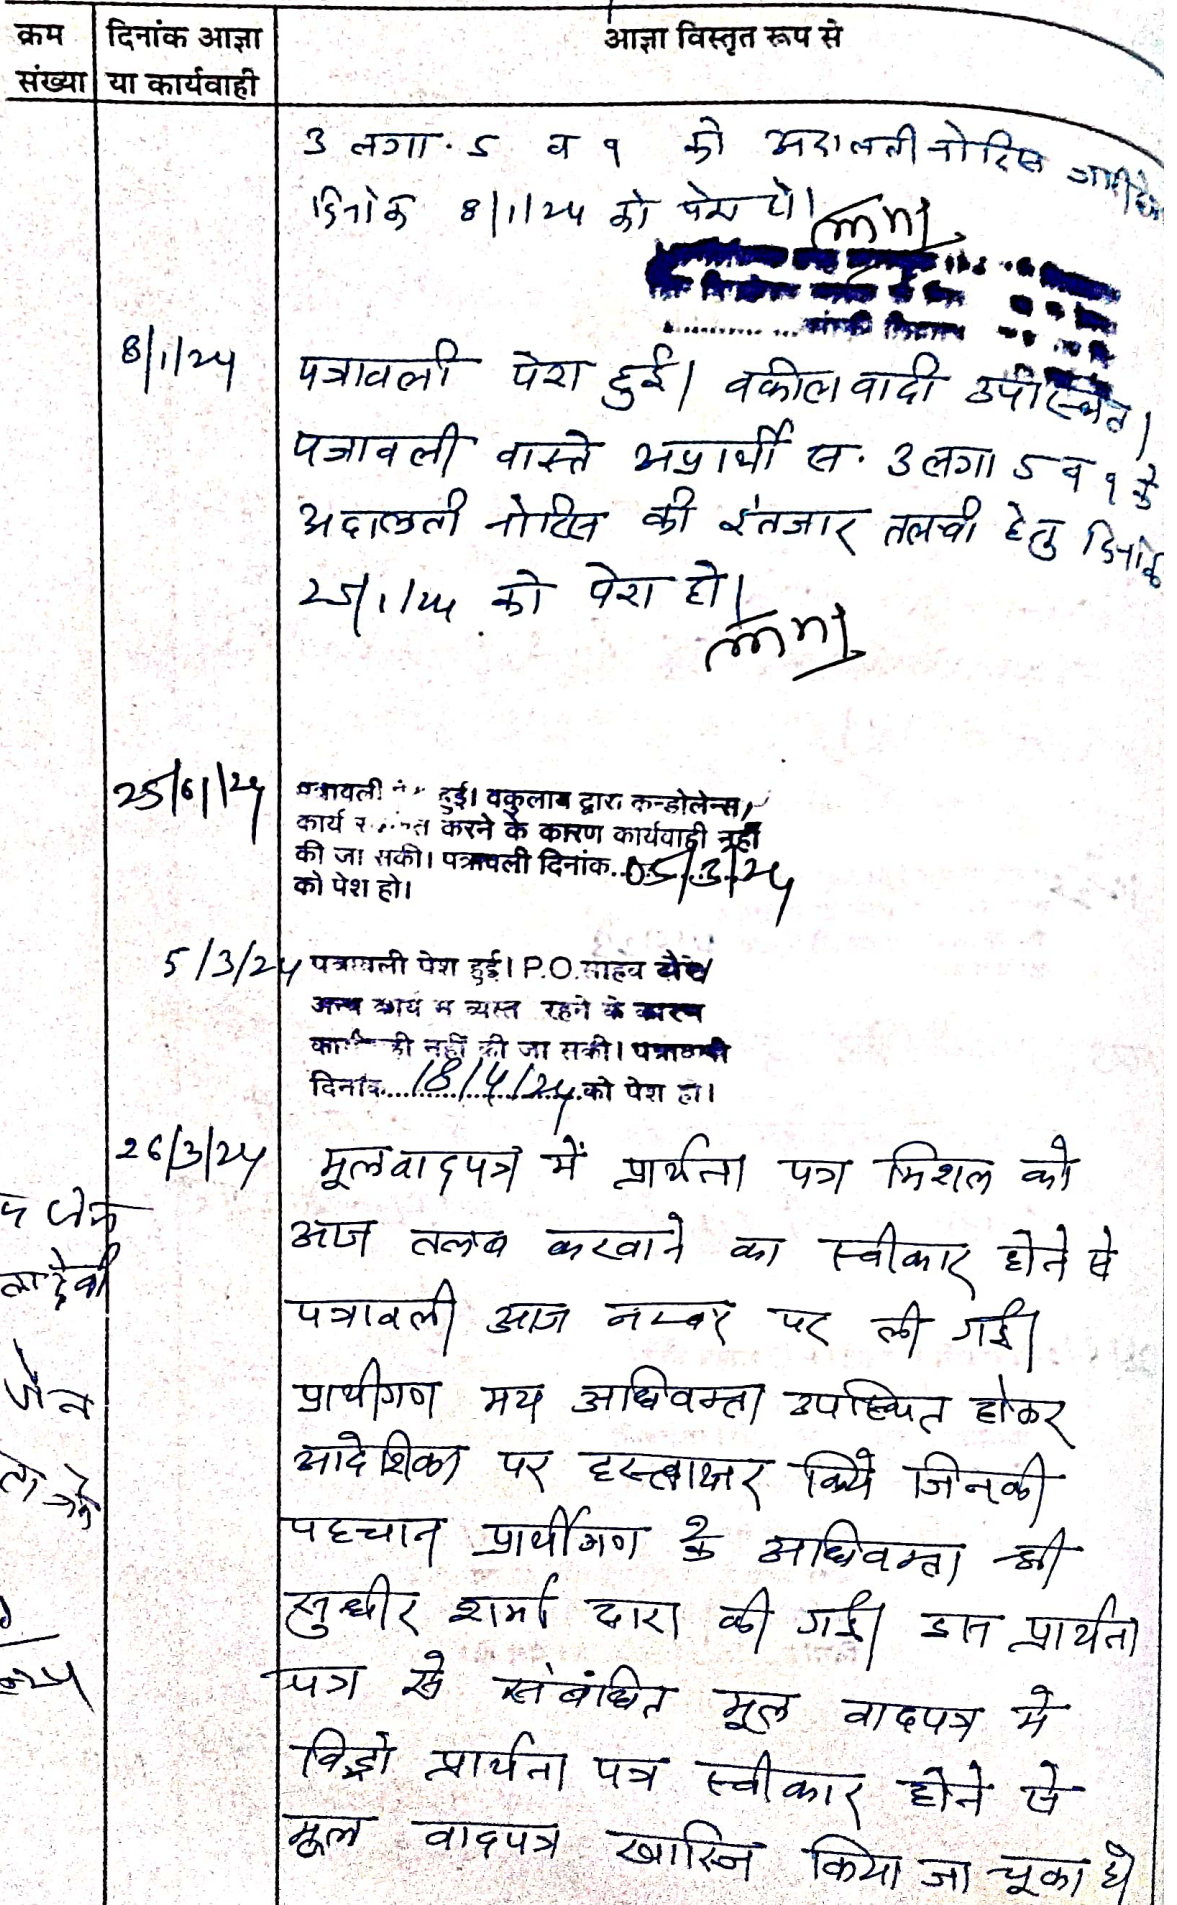 क्रम दिनांक आज्ञा आज्ञा विस्तृत रूप से
संख्या या कार्यवाही
3 लगा. 5 व 9 को अदालती नोटिस
दिनांक 8/1/24 को पेश हो।
8/1/24 पत्रावली पेश हुई। वकील वादी उपस्थित।
पत्रावली वास्ते अप्रार्थी स. 3 लगा 5 व 9 के
अदालती नोटिस की इंतजार तलबी हेतु दिनांक
25/1/24 को पेश हो।
25/01/24 पत्रावली हुई। वकुलाय द्वारा कन्डोलेन्स,
कार्य करने के कारण कार्यवाही नहीं
की जा सकी। पत्रावली दिनांक..05/3/24
को पेश हो।
5/3/24 पत्रावली पेश हुई। P.O. साहब
अन्य कार्य में व्यस्त रहने के कारण
नहीं की जा सकी। पत्रावली
दिनांक....18/4/24....को पेश हो।
26/3/24 मूलवादपत्र में प्रार्थना पत्र मिशल को
आज तलब करवाने का स्वीकार होने से
पत्रावली आज नम्बर पर ली गई।
प्रार्थीगण मय अधिवक्ता उपस्थित होकर
आदेशिका पर हस्ताक्षर किये जिनकी
पहचान प्रार्थीगण के अधिवक्ता श्री
सुधीर शर्मा द्वारा की गई। प्रार्थना
पत्र से संबंधित मूल वादपत्र में
विड्रो प्रार्थना पत्र स्वीकार होने से
मूल वादपत्र खारिज किया जा चूका है
जैन